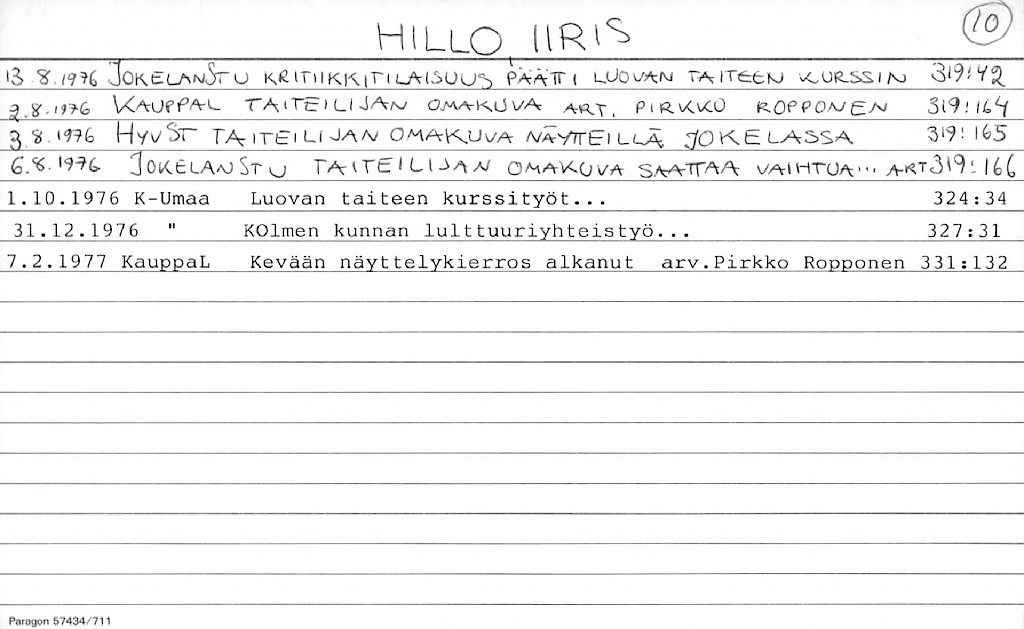 HILLO IIRIS 10
13.8.1976 JOKELANSTU KRITIIKKITILAISUUS PÄÄTTI LUOVAN TAITEEN KURSSIN 319:42
2.8.1976 KAUPPAL TAITEILIJAN OMAKUVA ART. PIRKKO ROPPONEN 319:164
3.8.1976 HYVST TAITEILIJAN OMAKUVA NÄYTTEILLÄ JOKELASSA 319:165
6.8.1976 JOKELANSTU TAITEILIJAN OMAKUVA SAATTAA VAIHTUA... ART 319:166
1.10.1976 K-Umaa Luovan taiteen kurssityöt... 324:34
31.12.1976 " KOlmen kunnan lulttuuriyhteistyö... 327:31
7.2.1977 KauppaL Kevään näyttelykierros alkanut arv.Pirkko Ropponen 331:132
Paragon 57434/711